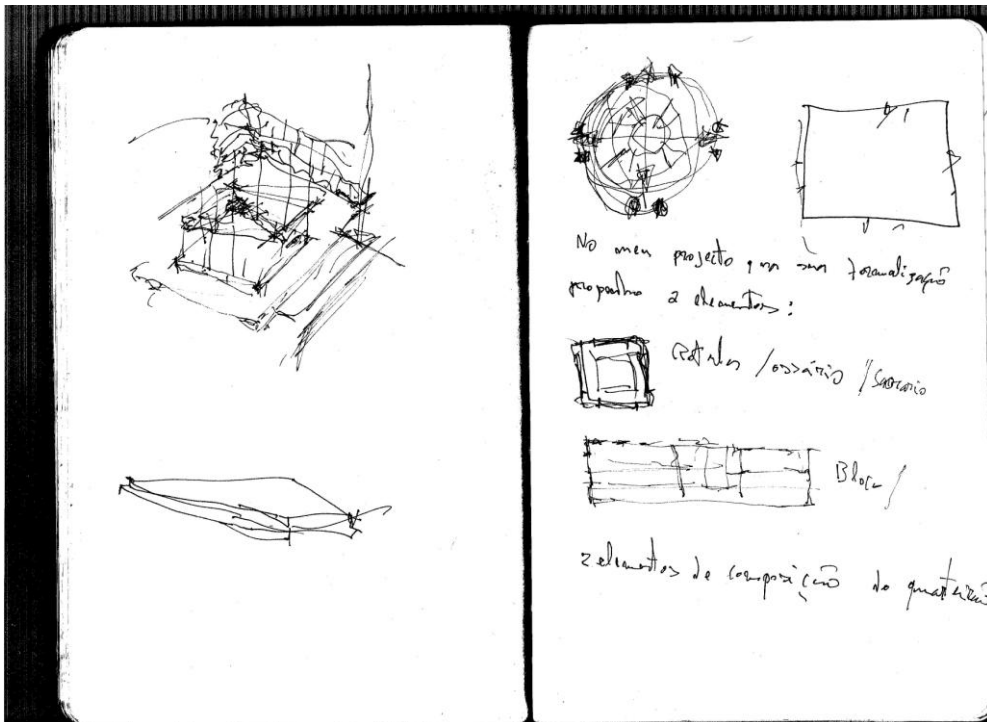 No meu projecto na sua formalização
proponho 2 elementos:
/ossário /Sacrário
Bloco /
2 elementos de composição do quarteirão